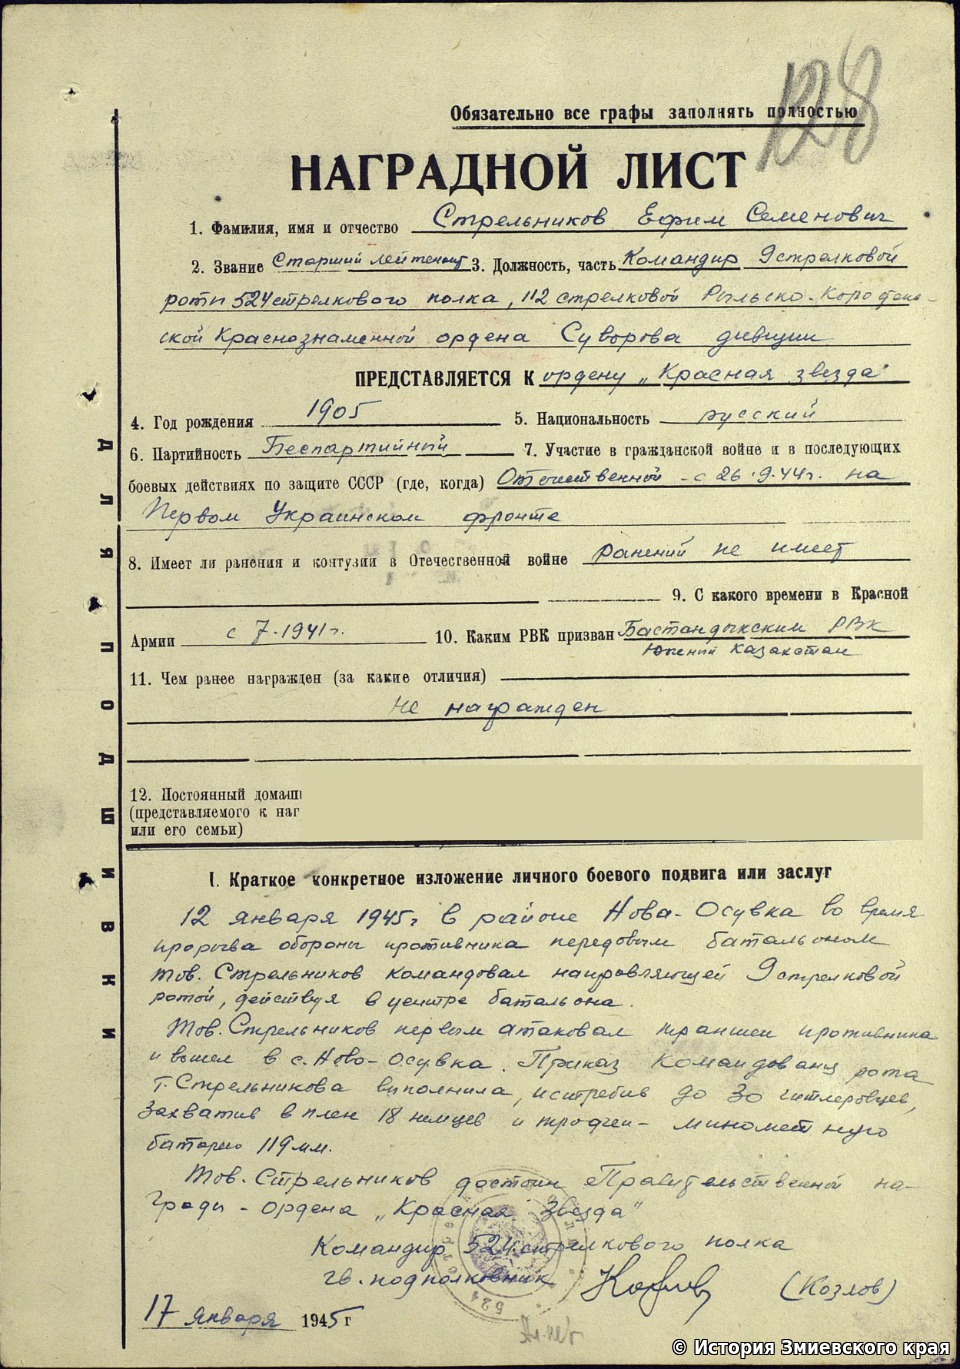 128
Обязательно все графы заполнять полностью
НАГРАДНОЙ ЛИСТ
1. Фамилия, имя и отчество Стрельников Ефим Семенович
2. Звание Старший лейтенант 3. Должность, часть Командир 9 стрелковой
роты 524 стрелкового полка, 112 стрелковой Рыльско-Коростень-
ской Краснознаменной ордена Суворова дивизии
ПРЕДСТАВЛЯЕТСЯ К ордену „Красная звезда"
4. Год рождения 1905 5. Национальность русский
6. Партийность Беспартийный 7. Участие в гражданской войне и в последующих
боевых действиях по защите СССР (где, когда) Отечественной - с 26.9.44г. на
Первом Украинском фронте
8. Имеет ли ранения и контузии в Отечественной войне ранений не имеет
9. С какого времени в Красной
Армии с 7-1941г. 10. Каким РВК призван Бастандыкским РВК
Южный Казахстан
11. Чем ранее награжден (за какие отличия)
Не награжден
12. Постоянный домашн
(представляемого к наг
или его семьи)
ДЛЯ ПОДШИВКИ
I. Краткое конкретное изложение личного боевого подвига или заслуг
12 января 1945г в районе Нова-Осувка во время
прорыва обороны противника передовым батальоном
тов. Стрельников командовал направляющей 9 стрелковой
ротой, действуя в центре батальона.
Тов. Стрельников первым атаковал траншеи противника
и вышел в с. Ново-Осувка. Приказ командования рота
т. Стрельникова выполнила, истребив до 30 гитлеровцев,
захватив в плен 18 немцев и трофеи - минометную
батарею 119 мм.
Тов. Стрельников достоин Правительственной на-
грады - ордена „Красная Звезда"
Командир 524 стрелкового полка
гв. подполковник (Козлов)
17 января 1945 г
© История Змиевского края